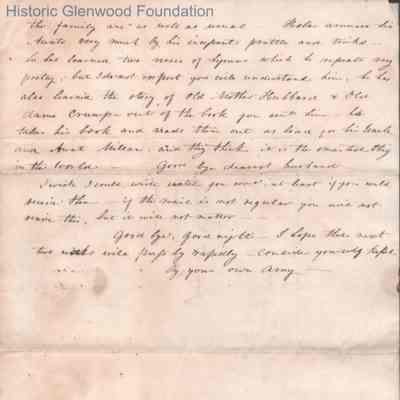 Historic Glenwood Foundation
the family are as well as usual amuses his
Aunts very much by his incessant prattle and tricks
he has learned two verses of hymns which he repeats very
pretty, but I do not expect you will understand him, he has
also learned the story of Old Mother Hubbard & Old
dame Crump out of the book you sent him. he
takes his book and reads them out as loud, for his Uncle
and Aunt and they think it is the smartest thing
in the world Good bye dearest husband
I wish I could write until you come at least if you would
receive them if the mail is not regular you will not
receive this, but it will not matter
Good bye, Good night I hope the next
two weeks will pass by rapidly consider yourself kissed
by your own Amy